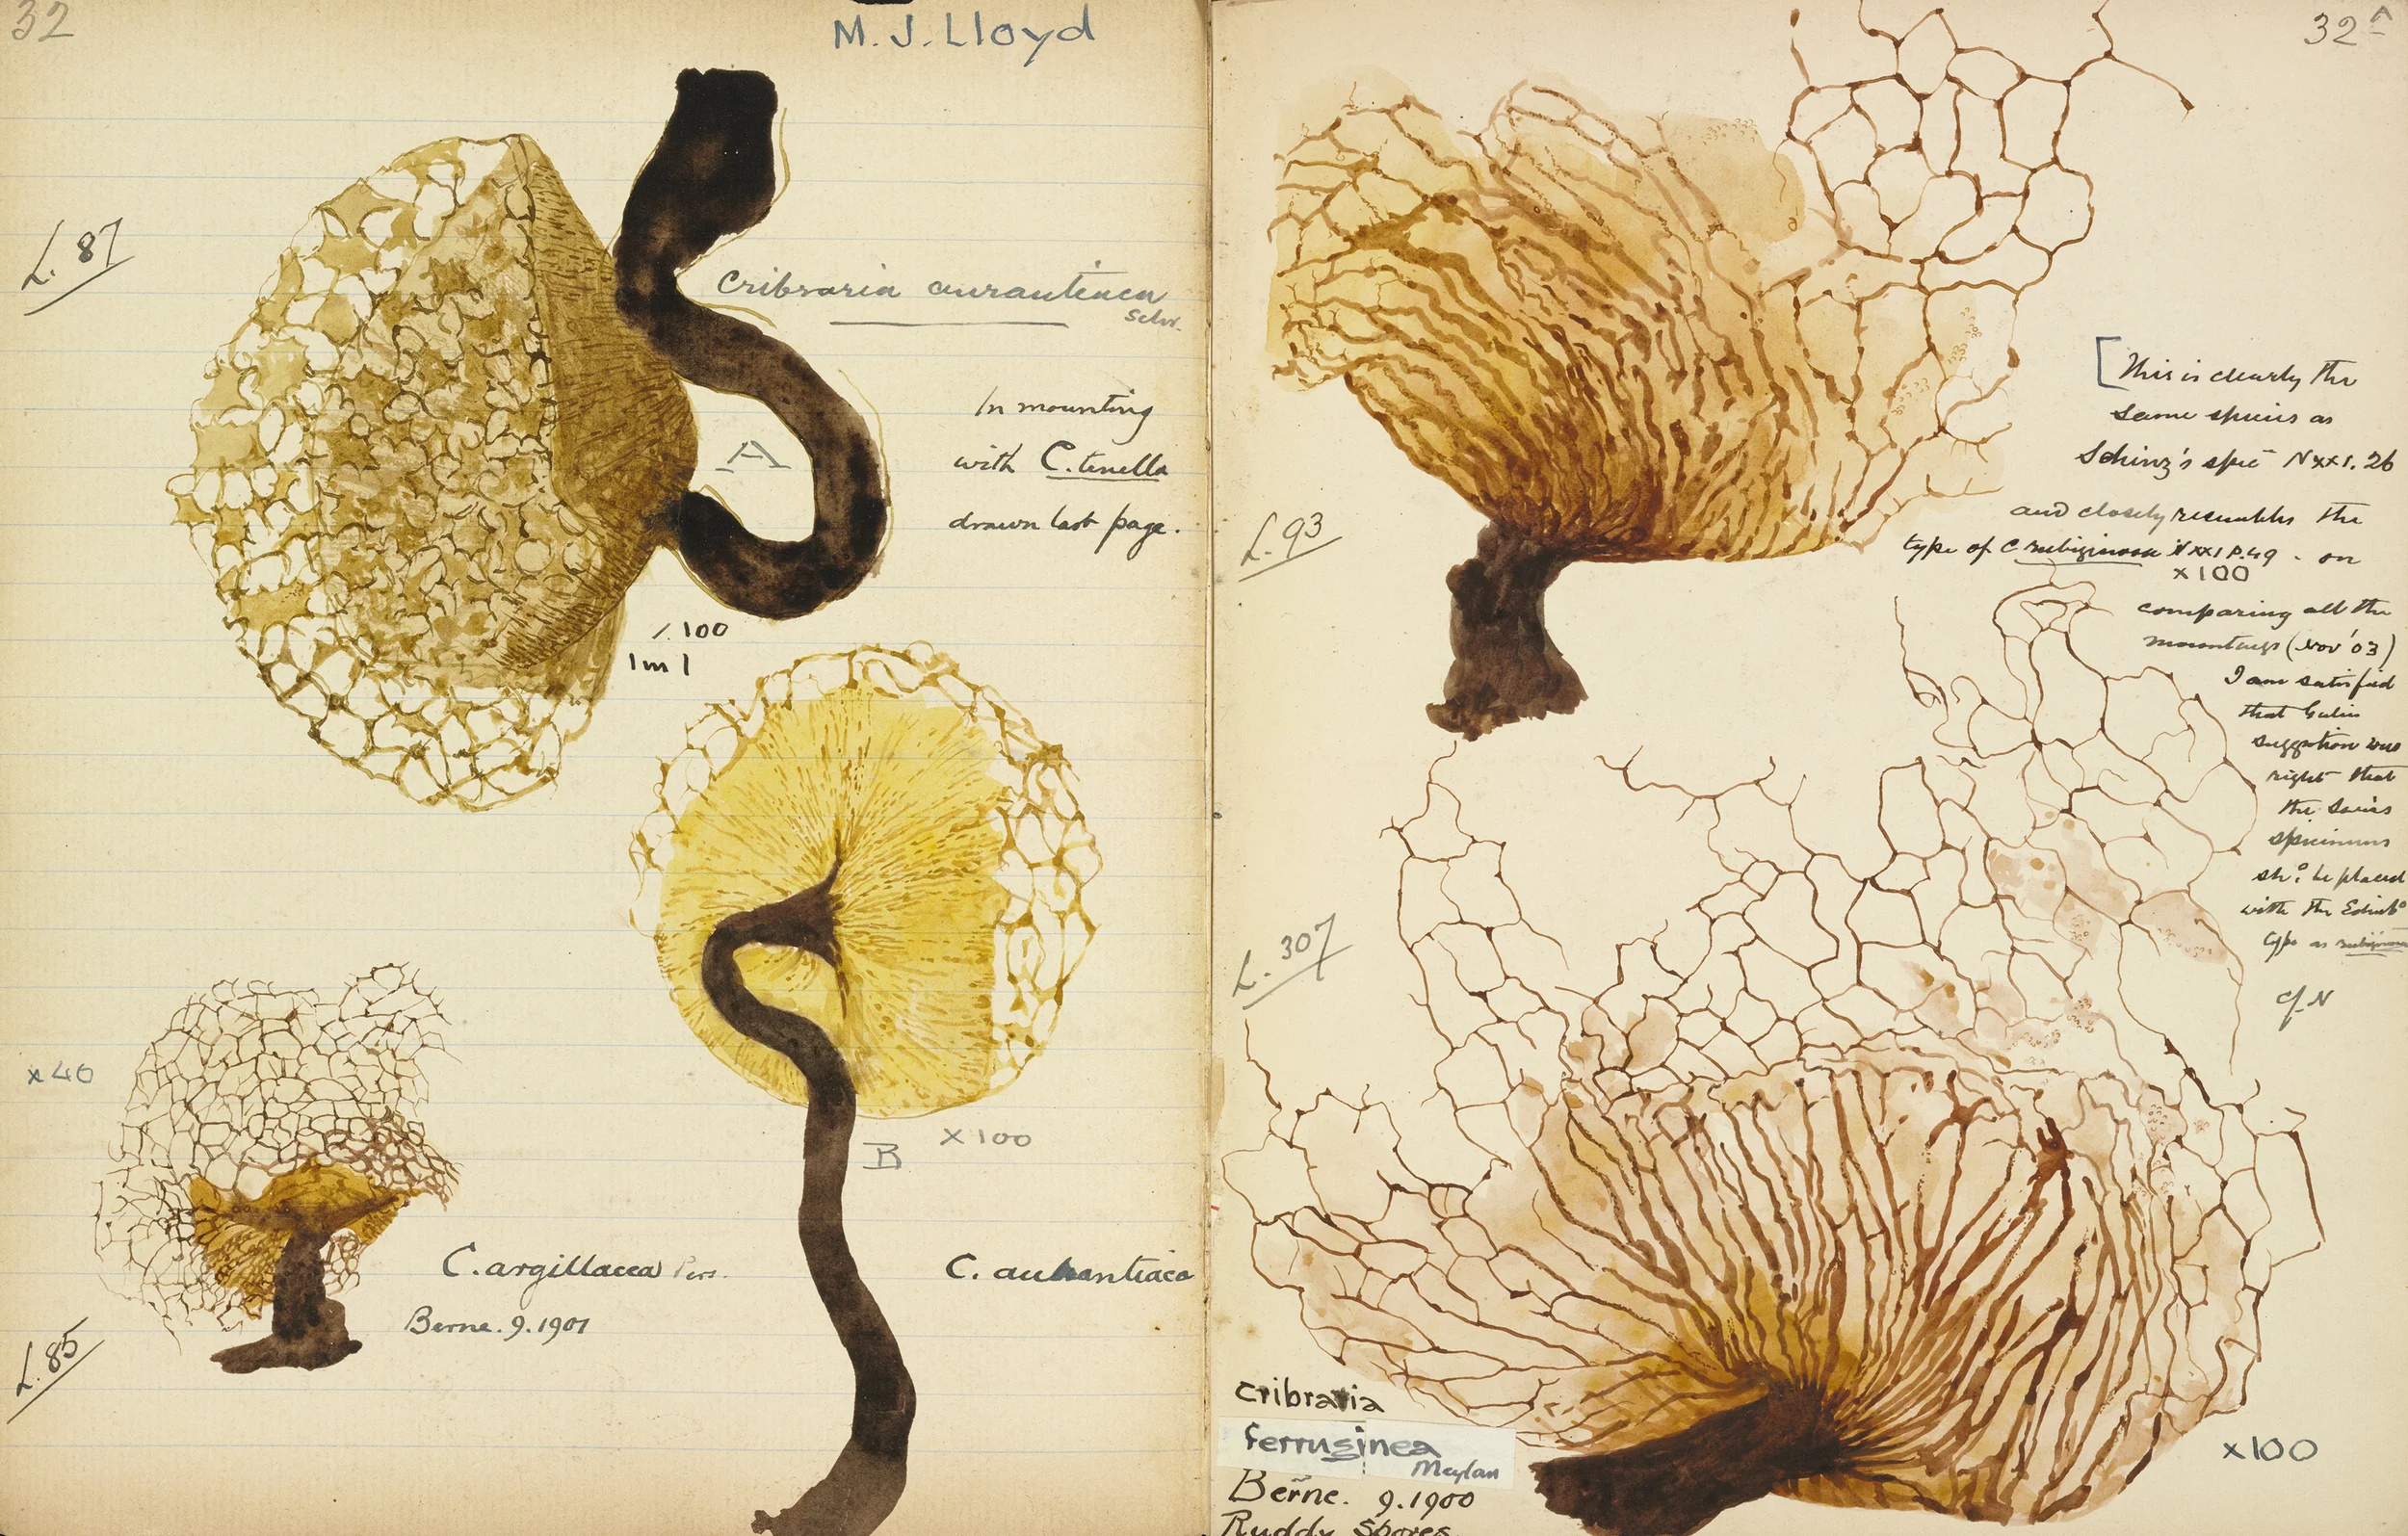 32
M. J. Lloyd
L. 87
Cribraria aurantiaca
Schr.
In mounting
with C. tenella
drawn last page.
A
/. 100
1 m 1
B
x 100
x 40
C. argillacea Pers.
Berne. 9. 1901
L. 85
C. aurantiaca
32A
[This is clearly the
same species as
Schinz's spec N xx1. 26
and closely resembles the
type of C rubiginosa N xx1 P. 49 - on
x 100
comparing all the
mountings (Nov '03)
I am satisfied
that
suggestion was
right that
the Swiss
specimens
shd. be placed
with the Edinbo
type as rubiginosa
cf. N
L. 93
L. 307
Cribraria
ferruginea
Meylan
Berne. 9. 1900
Ruddy Spores.
x 100